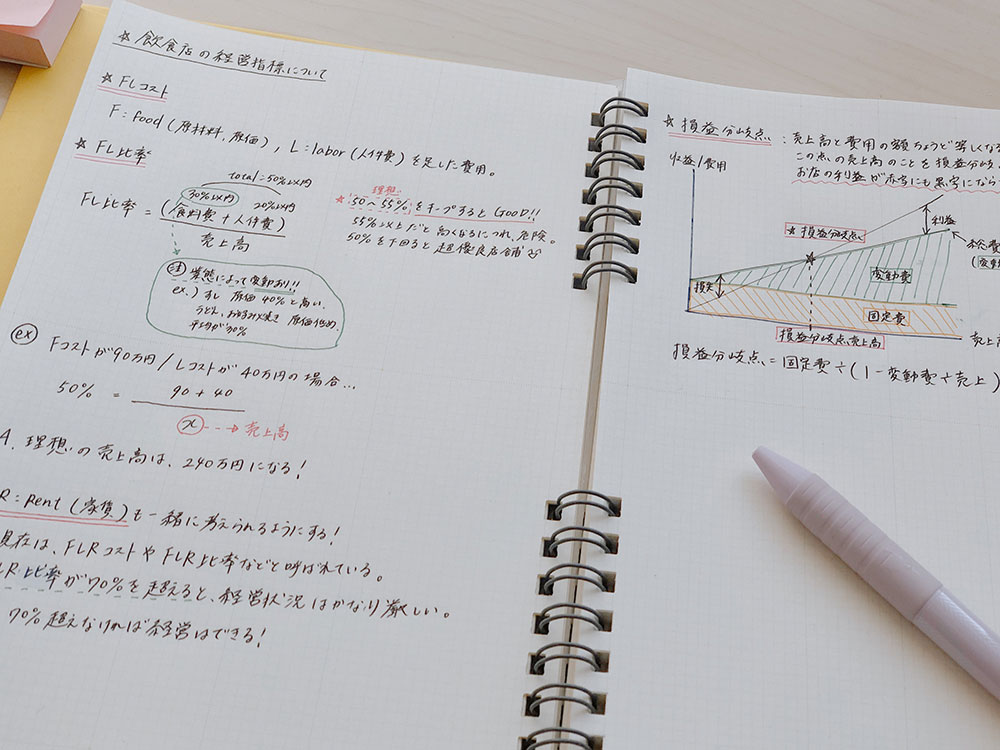 ☆ 飲食店の経営指標について
☆ FLコスト
F:food(原材料,原価), L:labor(人件費)を足した費用。
☆ FL比率
total:50%以内
30%以内 20%以内
FL比率 = (食料費 + 人件費)
売上高
理想
☆ 50〜55%をキープするとGOOD!!
55%以上だと高くなるにつれ、危険。
50%を下回ると超優良店舗
注 業態によって変動あり!!
ex.) すし 原価 40%と高い.
うどん、お好み焼き 原価低め.
平均が30%
ex Fコストが90万円/Lコストが40万円の場合…
50% = 90 + 40
x --→ 売上高
A. 理想の売上高は、240万円になる!
R:Rent(家賃)も一緒に考えられるようにする!
現在は、FLRコストやFLR比率などと呼ばれている。
LR比率が70%を超えると、経営状況はかなり厳しい。
70%超えなければ経営はできる!
☆ 損益分岐点:売上高と費用の額がちょうど等しくなる
この点の売上高のことを損益分岐
お店の利益が赤字にも黒字にならな
収益/費用
利益
☆損益分岐点
総費
(変動
変動費
損失
固定費
損益分岐点売上高
売上高
損益分岐点 = 固定費 ÷ (1 - 変動費 ÷ 売上)